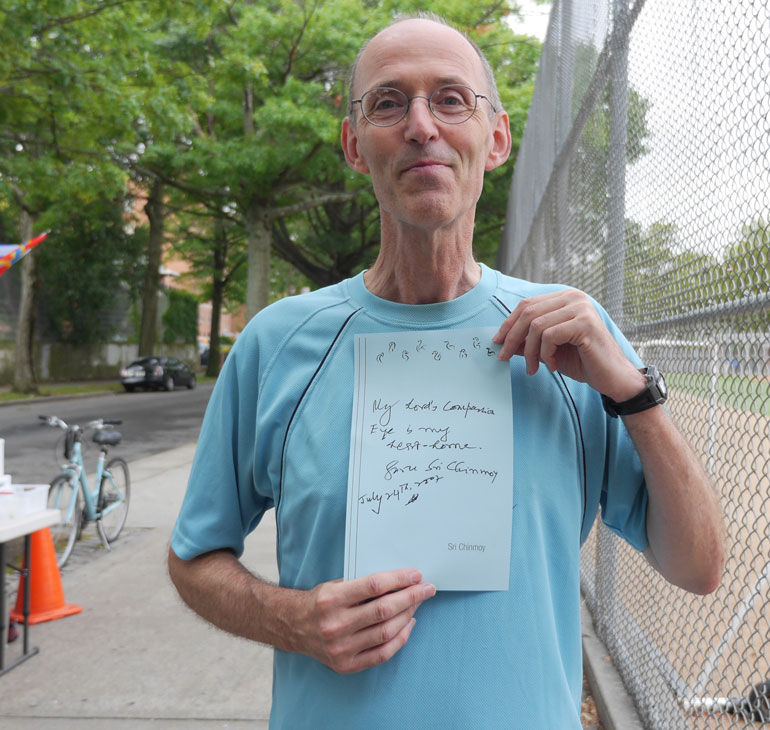 My Lord's Compassion
Eye is my
nest-home.
Guru Sri Chinmoy
July 24th, 2007
Sri Chinmoy